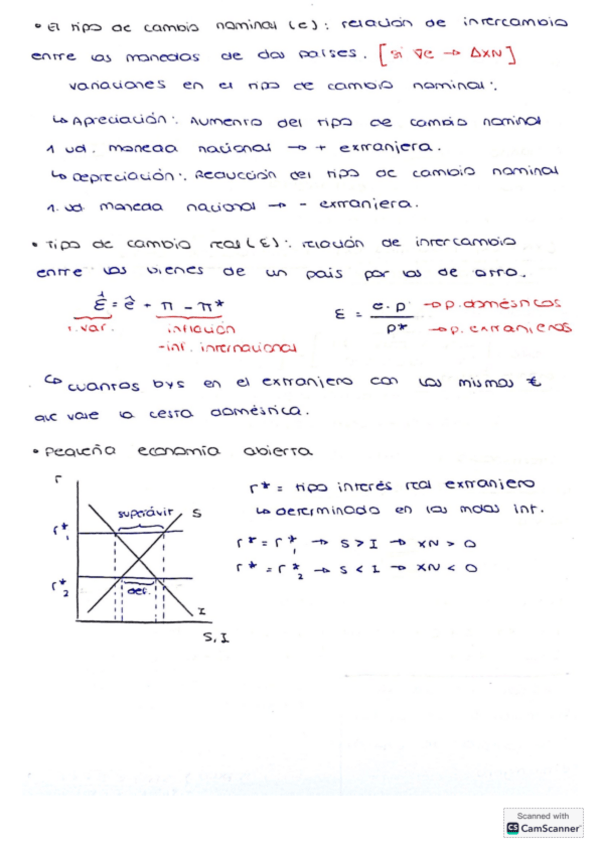 • El tipo de cambio nominal (e): relación de intercambio
entre las monedas de dos países. [si ∇e → ΔXN]
variaciones en el tipo de cambio nominal:
↳ Apreciación: Aumento del tipo de cambio nominal
1 ud. moneda nacional → + extranjera.
↳ Depreciación: Reducción del tipo de cambio nominal
1. ud moneda nacional → - extranjera.
• Tipo de cambio real (Ɛ): relación de intercambio
entre los bienes de un país por los de otro.
Ɛ̂ = ê + π - π*
t.var. inflación
-inf. internacional
Ɛ = e.p / p*
→ p. domésticos
→ p. extranjeros
↳ cuantos bys en el extranjero con los mismos €
que vale la cesta doméstica.
• Pequeña economía abierta
r
superávit
S
r*1
r*2
def.
I
S, I
r* = tipo interés real extranjero
↳ determinado en los mdos int.
r* = r*1 → S > I → XN > 0
r* = r*2 → S < I → XN < 0
Scanned with
CS CamScanner